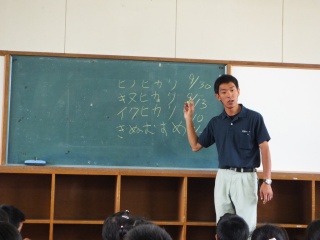 ヒノヒカリ 9/30
キヌヒカリ 9/13
イクヒカリ
きぬむすめ